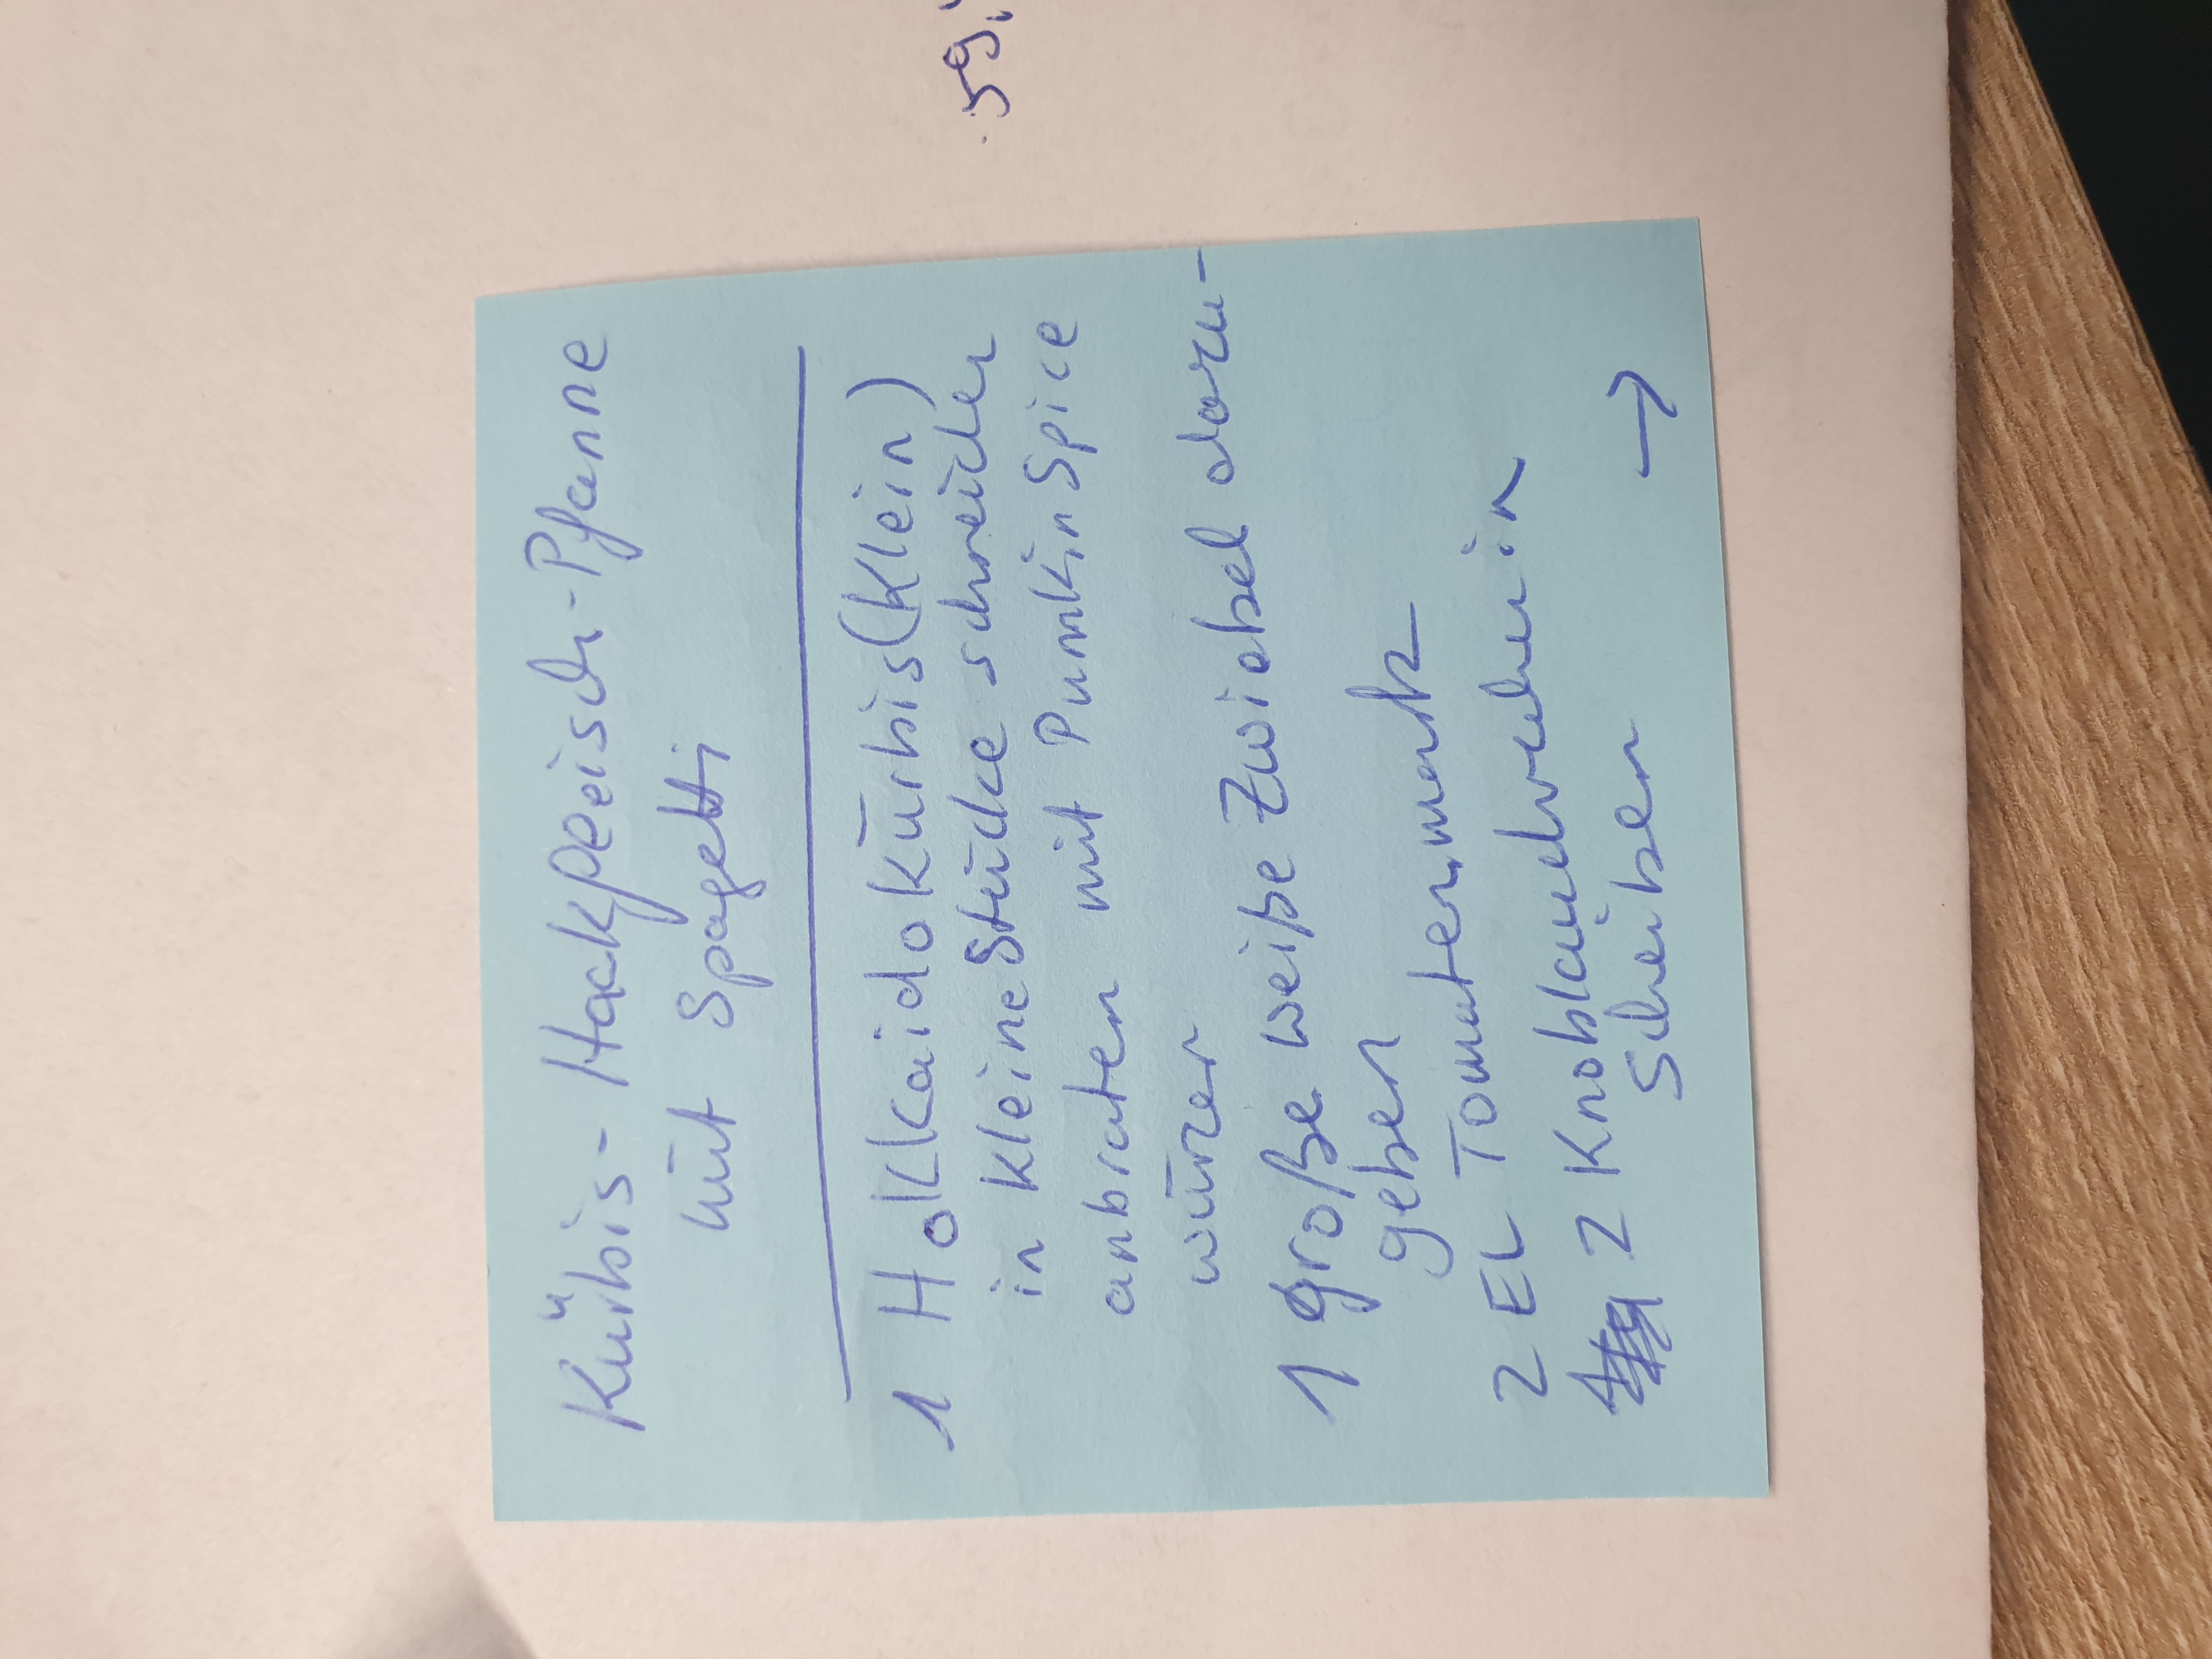 Kürbis-Hackfleisch-Pfanne
mit Spagetti
1 Hokkaidokürbis (klein)
in kleine Stücke schneiden
anbraten mit Pumkin Spice
würzen
1 große weiße Zwiebel dazu-
geben
2 EL Tomatenmark
2 Knoblauchzehen in
Scheiben →
59,